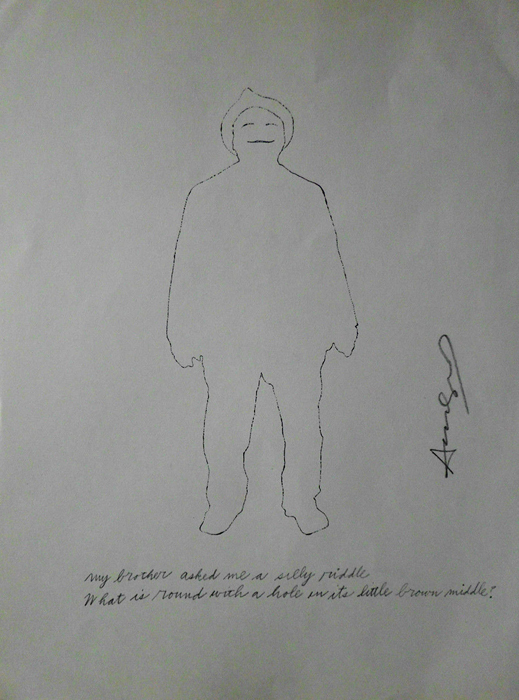 my brother asked me a silly riddle
What is round with a hole in its little brown middle?